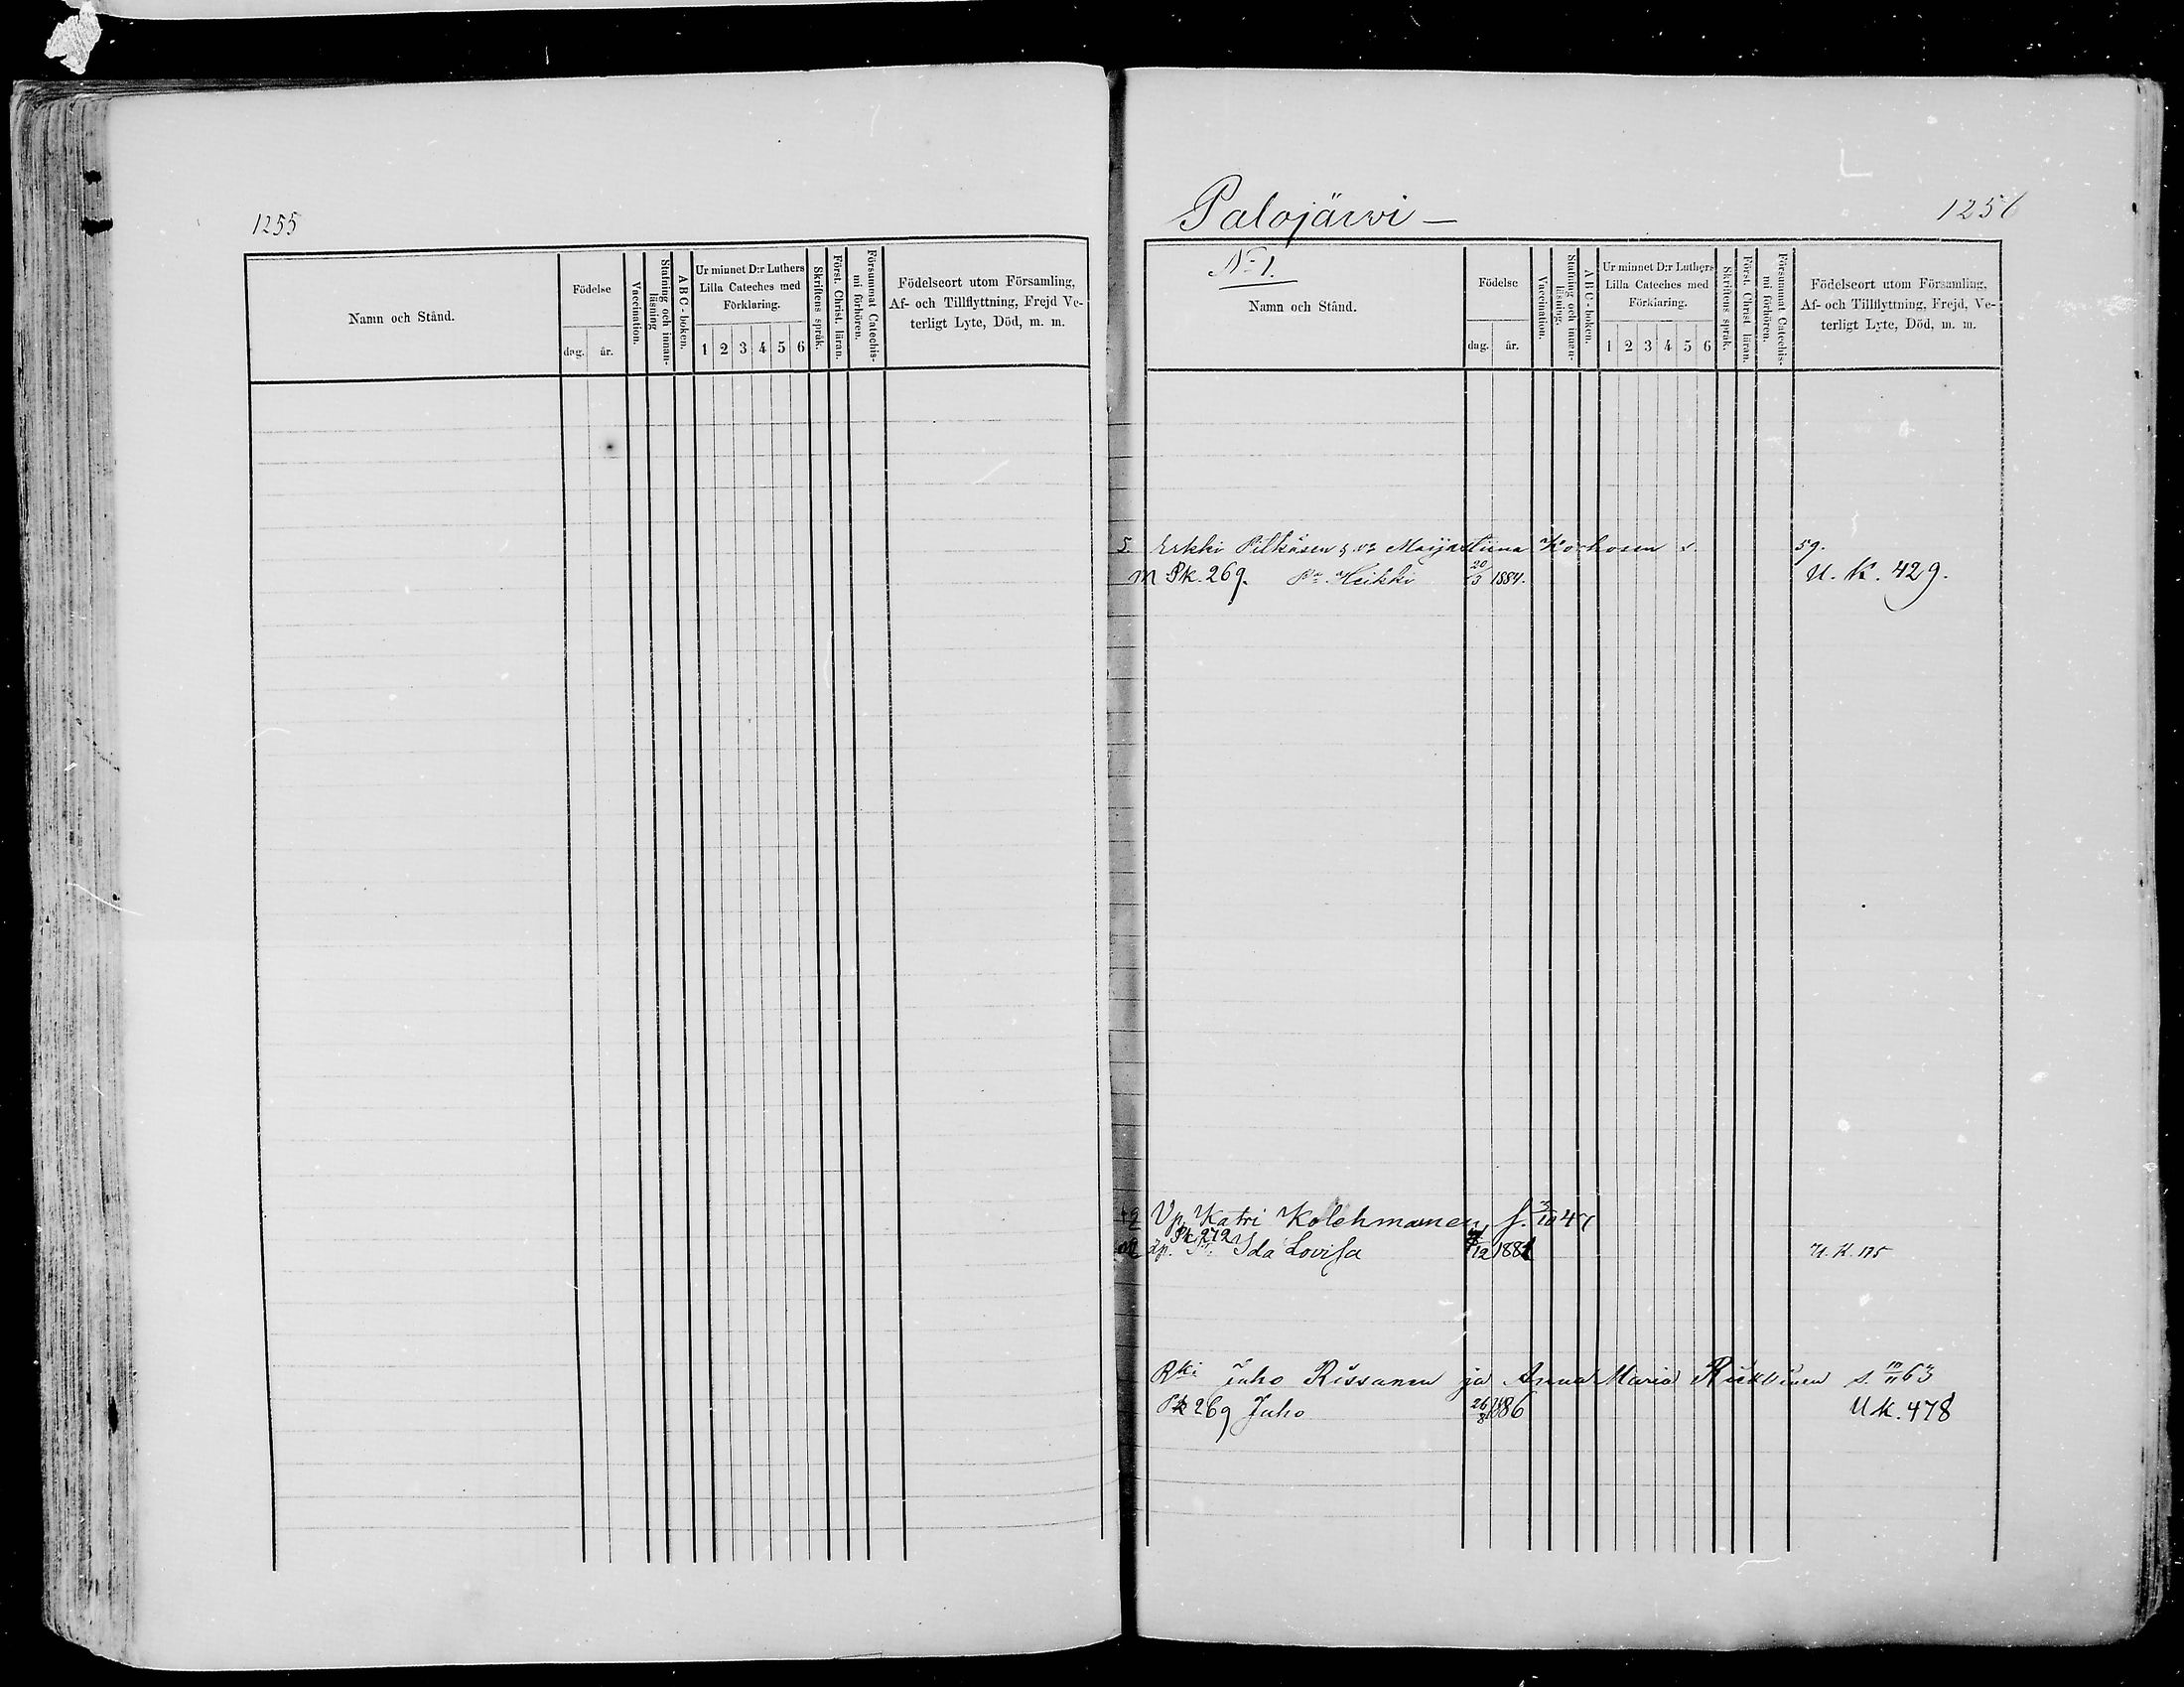 1255
Namn och Stånd.
Födelse
dag. år.
Vaccination.
Stafning och innanläsning
ABC-boken.
Ur minnet D:r Luthers
Lilla Cateches med
Förklaring.
1 2 3 4 5 6
Skriftens språk.
Först. Christ. läran.
Försummat Catechismi förhören.
Födelseort utom Församling,
Af- och Tillflyttning, Frejd Ve-
terligt Lyte, Död, m. m.
Palojärvi –
1256
No 1.
Namn och Stånd.
Födelse
dag. år.
Vaccination.
Stafning och innanläsning.
ABC-boken.
Ur minnet D:r Luthers
Lilla Cateches med
Förklaring.
1 2 3 4 5 6
Skriftens språk.
Först. Christ läran.
Försummat Catechismi förhören.
Födelseort utom Församling,
Af- och Tillflyttning, Frejd, Ve-
terligt Lyte, Död, m. m.
Erkki Pitkäsen Korhosen s. 59.
m Pk. 269. Heikki 20/3 1884. U. K. 429.
Katri Kolehmainen f. 47
Pk 272
Ida Lovisa 12 1881 U. K. 175
Rki Juho Rissanen ja Anna Maria s. 63
Pk 269 Juho 26/8 1886 U K. 478